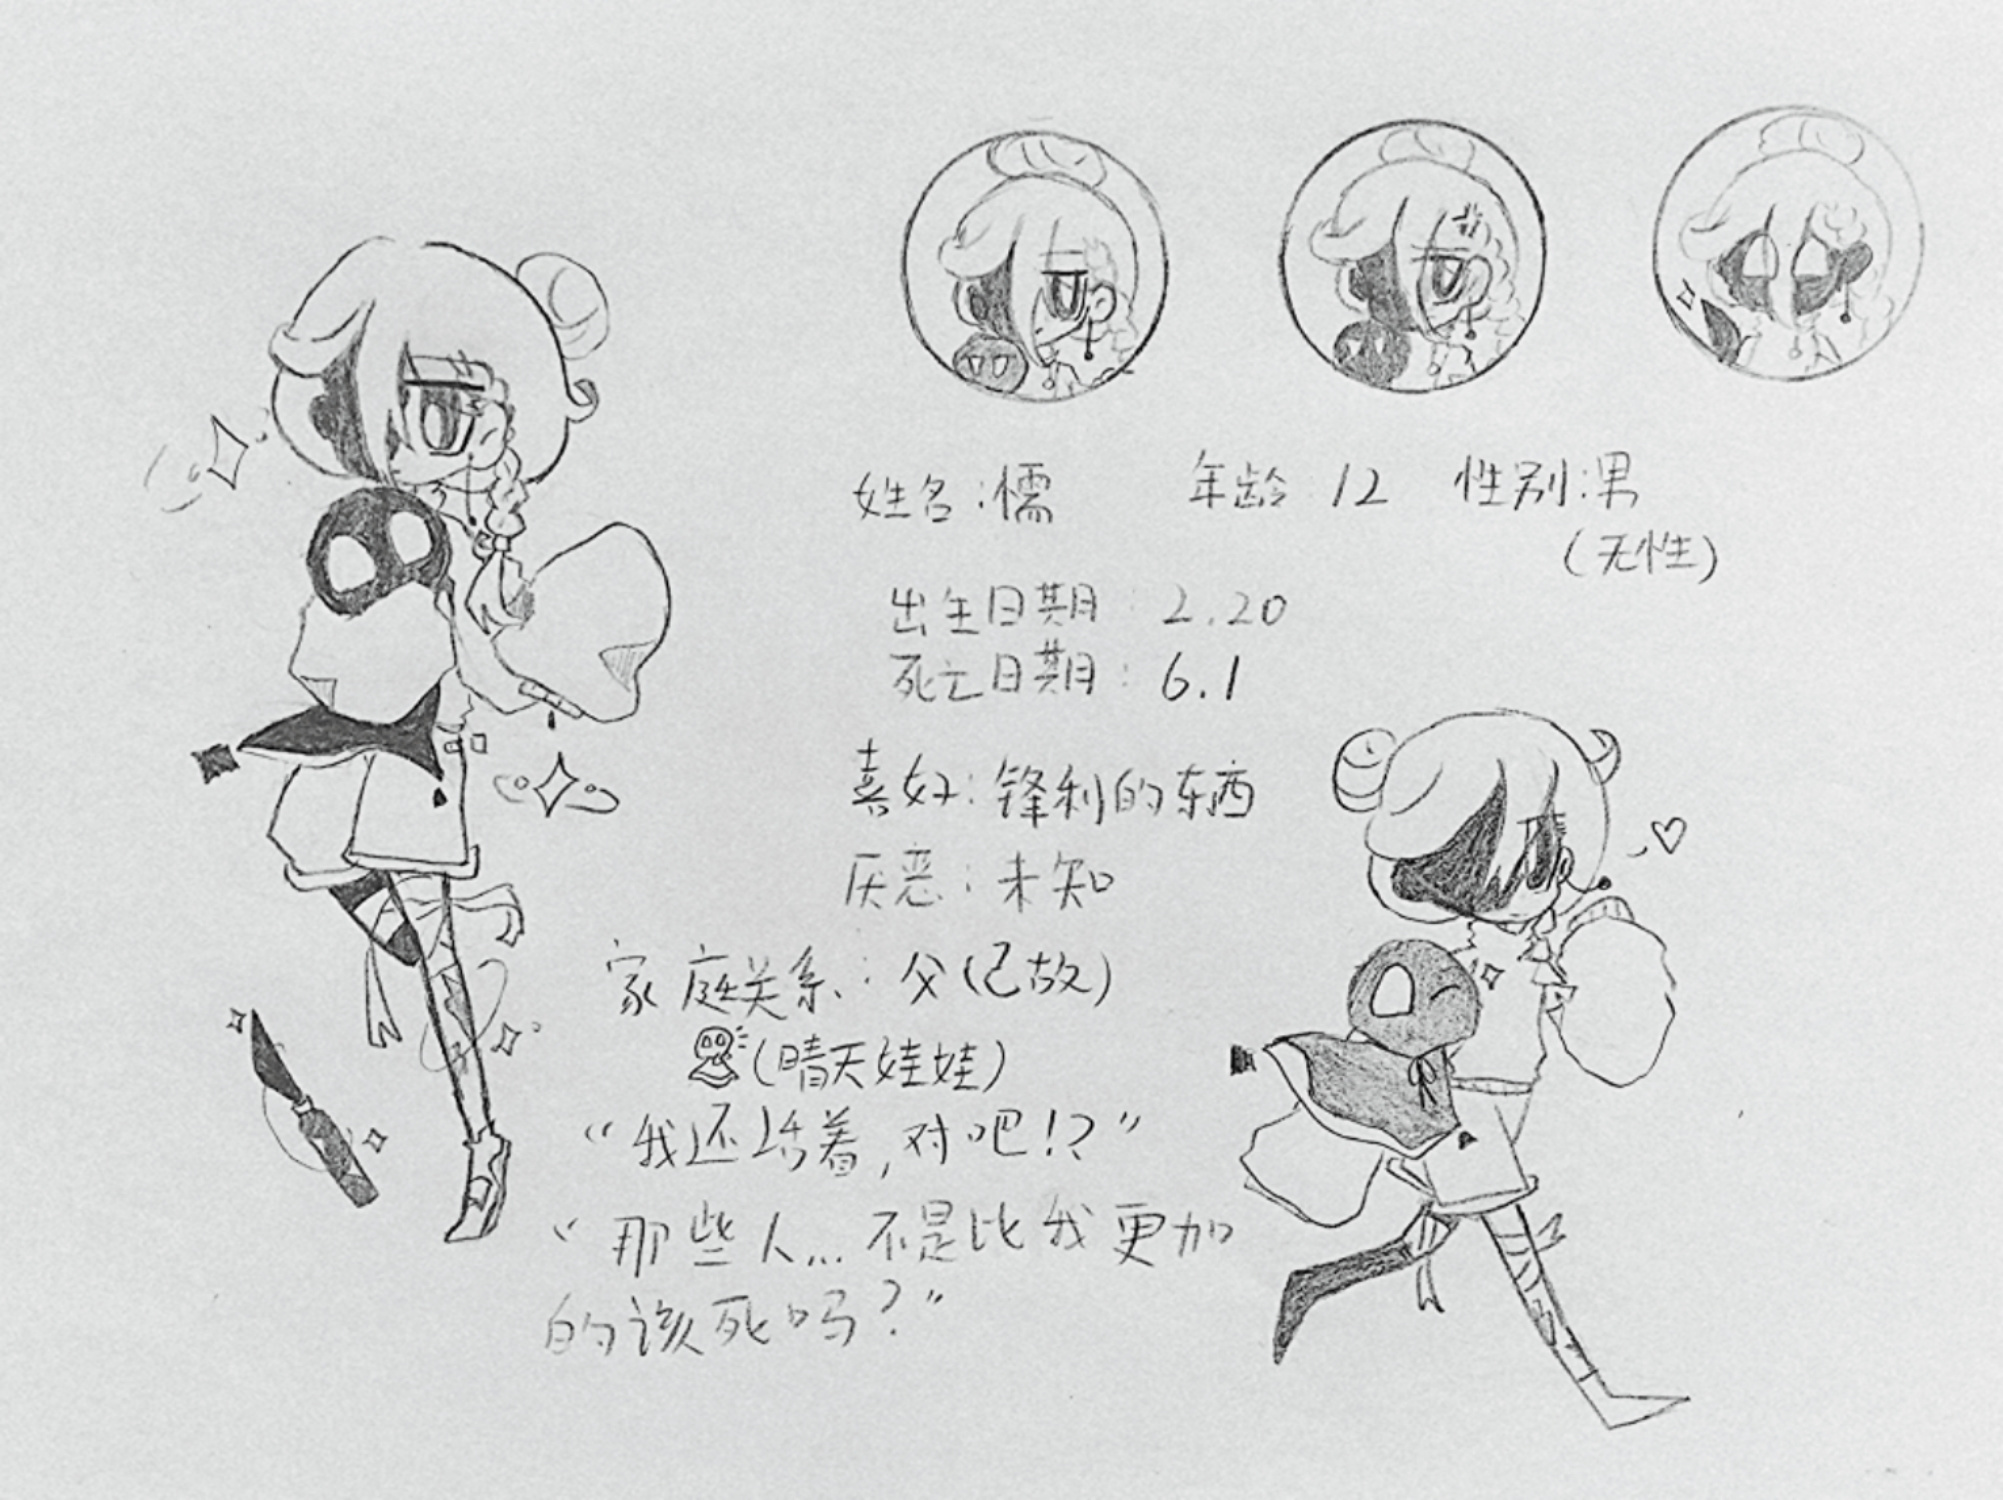 姓名:懦 年龄 12 性别:男
(无性)
出生日期:2.20
死亡日期:6.1
喜好:锋利的东西
厌恶:未知
家庭关系:父(已故)
(晴天娃娃)
“我还活着,对吧!?”
“那些人...不是比我更加
的该死吗?”